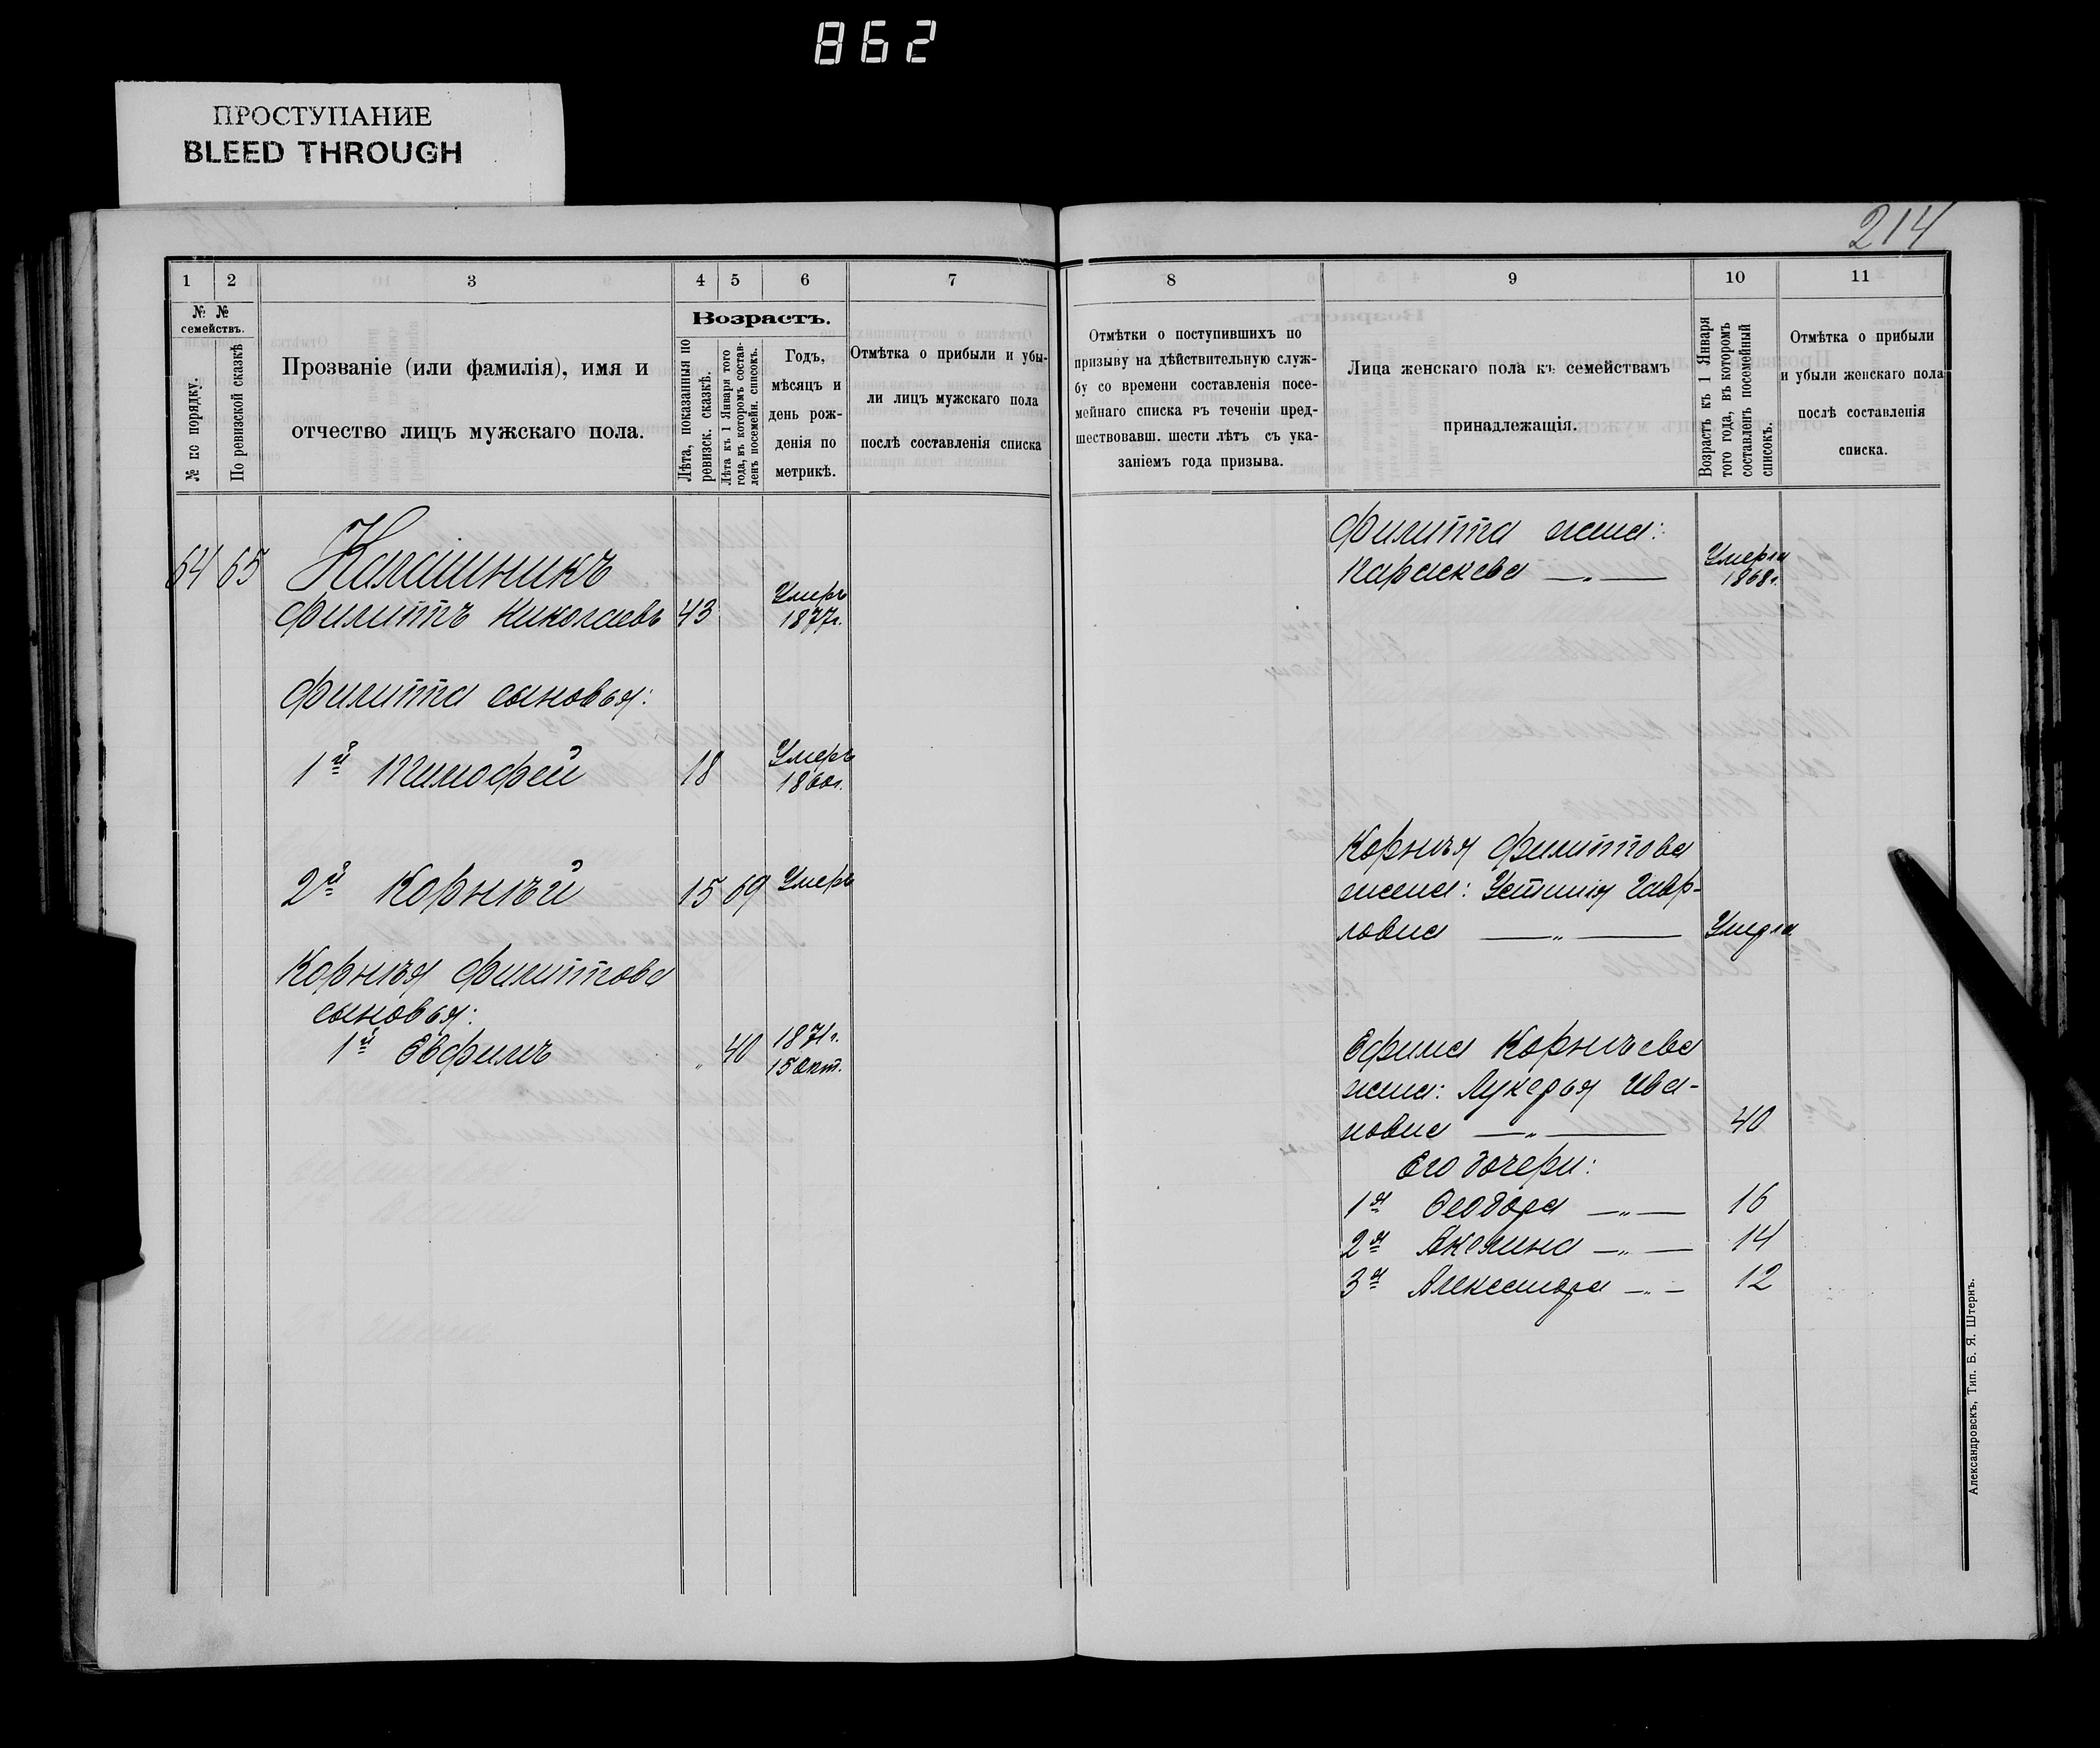 862
ПРОСТУПАНИЕ
BLEED THROUGH
214
1 2 3 4 5 6 7
№ № семействъ.
№ по порядку.
По ревизской сказкѣ
Прозваніе (или фамилія), имя и
отчество лицъ мужскаго пола.
Возрастъ.
Лѣта, показанныя по
ревизск. сказкѣ.
Лѣта къ 1 Января того
года, въ которомъ состав-
ленъ посемейн. списокъ.
Годъ,
мѣсяцъ и
день рож-
денія по
метрикѣ.
Отмѣтка о прибыли и убы-
ли лицъ мужскаго пола
послѣ составленія списка
64 65 Калашникъ
Филиппъ Николаевъ 43 Умеръ 1877г.
Филиппа сыновья:
1й Тимофей 18 Умеръ 1860г.
2й Корнѣй 15 69 Умеръ
Корнѣя Филиппова
сыновья:
1й Евфимъ " 40 1871г. 15 Окт.
8 9 10 11
Отмѣтки о поступившихъ по
призыву на дѣйствительную служ-
бу со времени составленія посе-
мейнаго списка въ теченіи пред-
шествовавш. шести лѣтъ съ ука-
заніемъ года призыва.
Лица женскаго пола къ семействамъ
принадлежащія.
Возрастъ къ 1 Января
того года, въ которомъ
составленъ посемейный
списокъ.
Отмѣтка о прибыли
и убыли женскаго пола
послѣ составленія
списка.
Филиппа жена:
Параскева — " — Умерла 1868г.
Корнѣя Филиппова
жена: Устинія Гавр-
ловна — " — Умерла
Ефима Корнѣева
жена: Лукерья Ива-
новна — " — 40
Его дочери:
1я Феодора — " — 16
2я Акелина — " — 14
3я Александра — " — 12
Александровскъ, Тип. Б. Я. Штернъ.